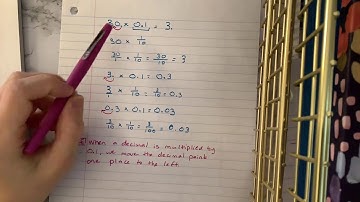 30 × 0.1 = 3.
30 × 1/10
30/1 × 1/10 = 30/10 = 3
3 × 0.1 = 0.3
3/1 × 1/10 = 3/10 = 0.3
0.3 × 0.1 = 0.03
3/10 × 1/10 = 3/100 = 0.03
when a decimal is multiplied by
0.1, we move the decimal point
one place to the left.